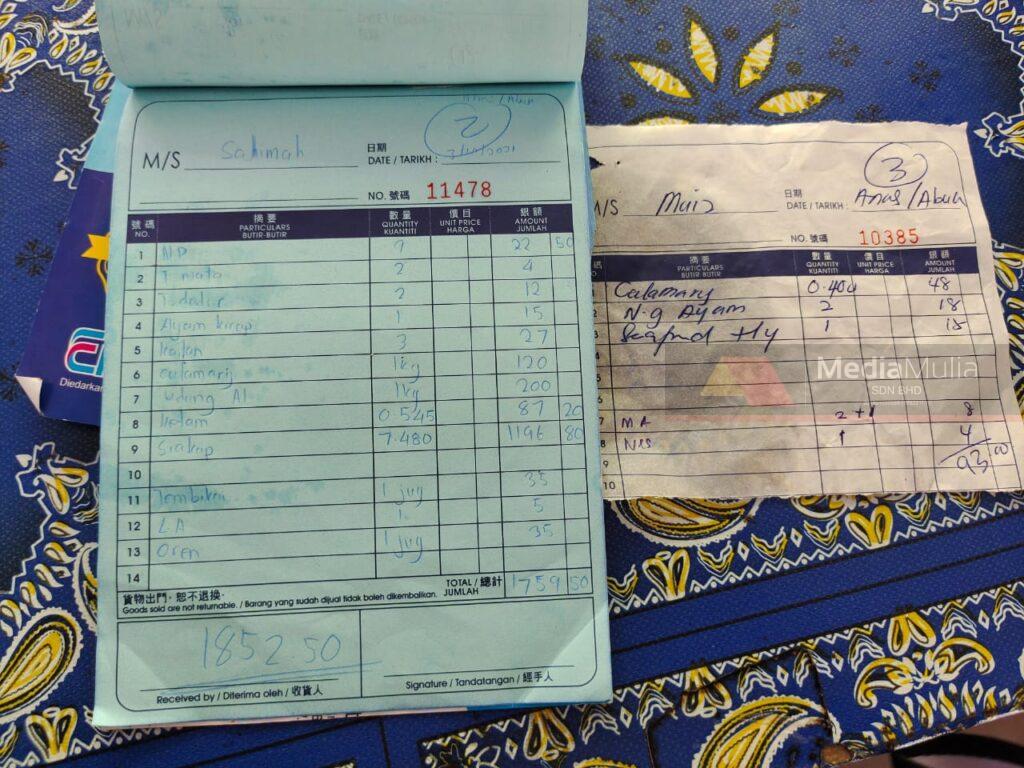 M/S Sahimah
日期
DATE / TARIKH : 3/10/2021
2
Anas/Abun
NO. 號碼 11478
號碼 NO. 摘要 PARTICULARS BUTIR-BUTIR 數量 QUANTITY KUANTITI 價目 UNIT PRICE HARGA 銀額 AMOUNT JUMLAH
1 NP 9 22 50
2 T. mata 2 4
3 T. dalir 2 12
4 Ayam 1 15
5 Kailan 3 27
6 Calamary 1kg 120
7 Udang A1 1kg 200
8 Ketam 0.545 87 20
9 Siakap 7.480 1196 80
10
11 Tembikai 1 jug 35
12 L.A 1. 5
13 Oren 1 jug 35
14
貨物出門，恕不退換。
Goods sold are not returnable. / Barang yang sudah dijual tidak boleh dikembalikan.
TOTAL / 總計 JUMLAH 1759 50
1852.50
Received by / Diterima oleh / 收貨人
Signature / Tandatangan / 經手人
Diedarkan
3
/S Muiz
日期
DATE / TARIKH : Anas/Abun
NO. 號碼 10385
摘要 PARTICULARS BUTIR BUTIR 數量 QUANTITY KUANTITI 價目 UNIT PRICE HARGA 銀額 AMOUNT JUMLAH
Calamary 0.400 48
2 N.g Ayam 2 18
3 Seafood 1 15
7 MA 2+1 8
8 NIS 1 4
93 00
10
MediaMulia
SDN BHD